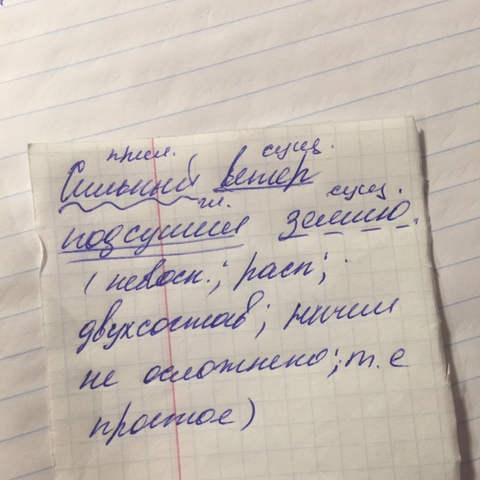 прил. сущ.
Сильный ветер
гл. сущ.
подсушил землю.
(невоск.; расп;
двухсостав; ничем
не осложнено; т.е
простое)